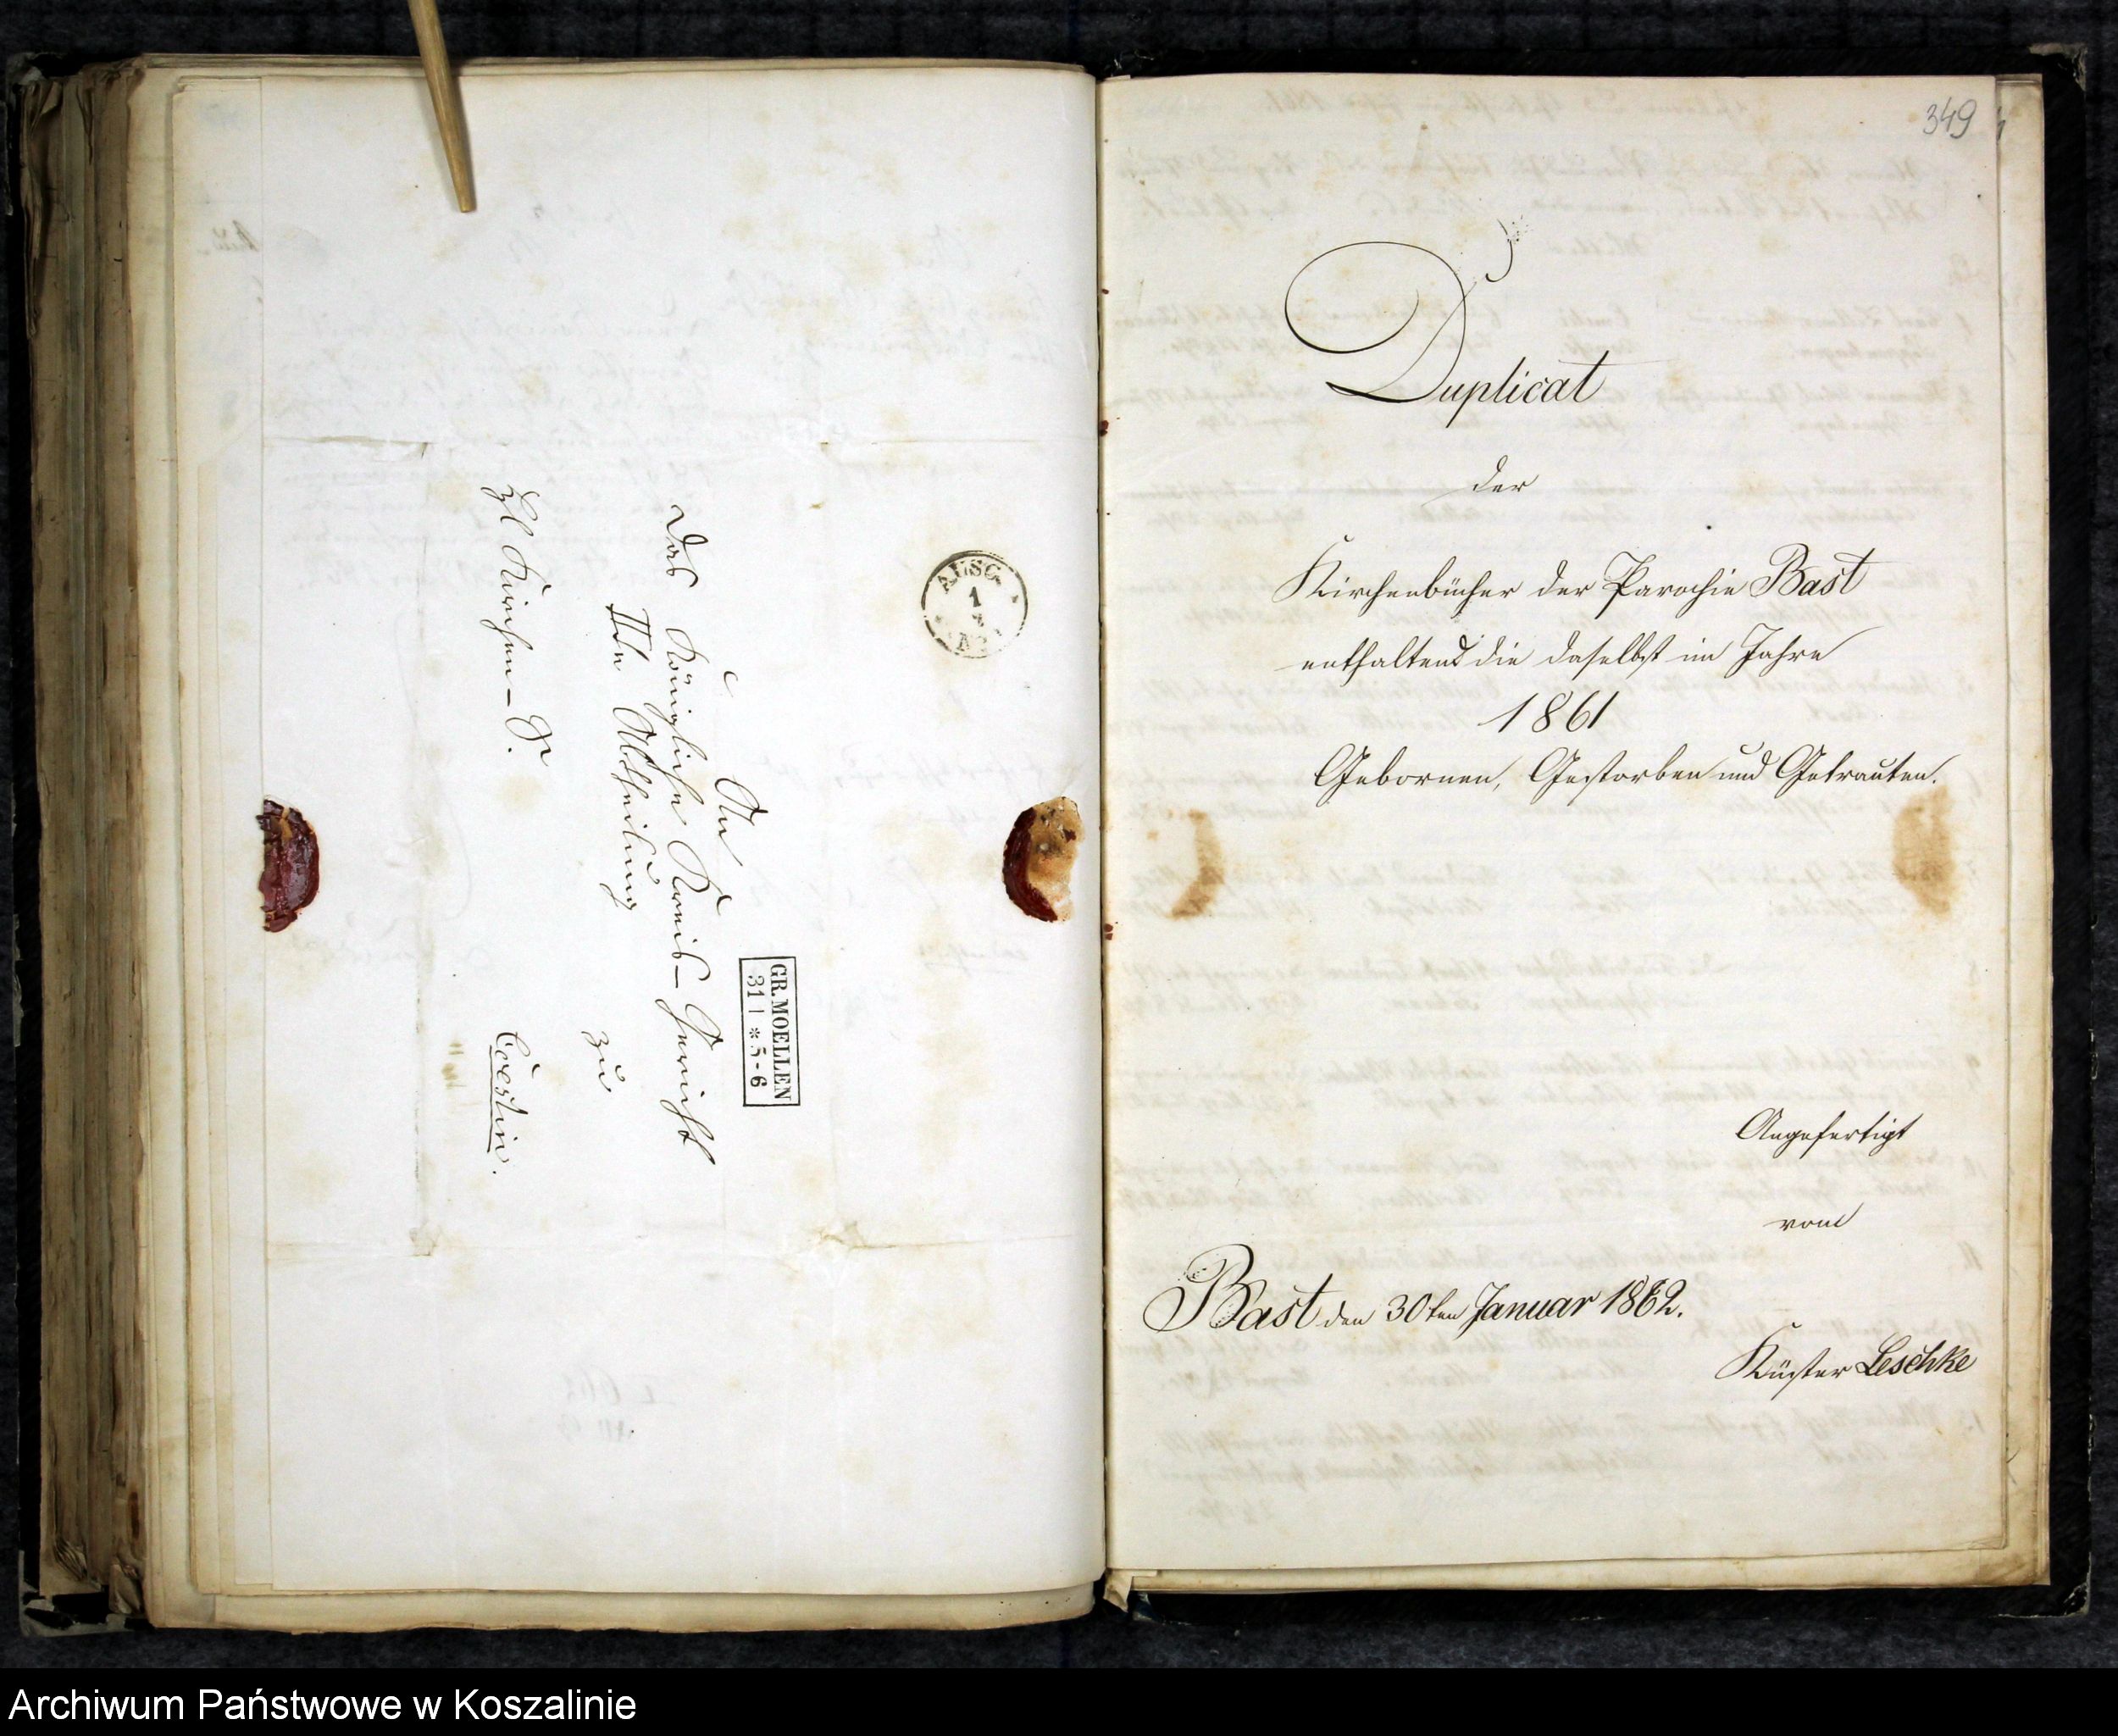 An
Das Königliche Kreis-Gericht
IIte Abtheilung
zu
Coeslin.
Kirchen-S.
GR. MOELLEN
31 1 * 5-6
AUSG
1
349
Duplicat
der
Kirchenbücher der Parochie Bast
enthaltend die daselbst im Jahre
1861
Gebornen, Gestorben und Getrauten.
Angefertigt
vom
Bast den 30ten Januar 1862.
Küster Leschke
Archiwum Państwowe w Koszalinie